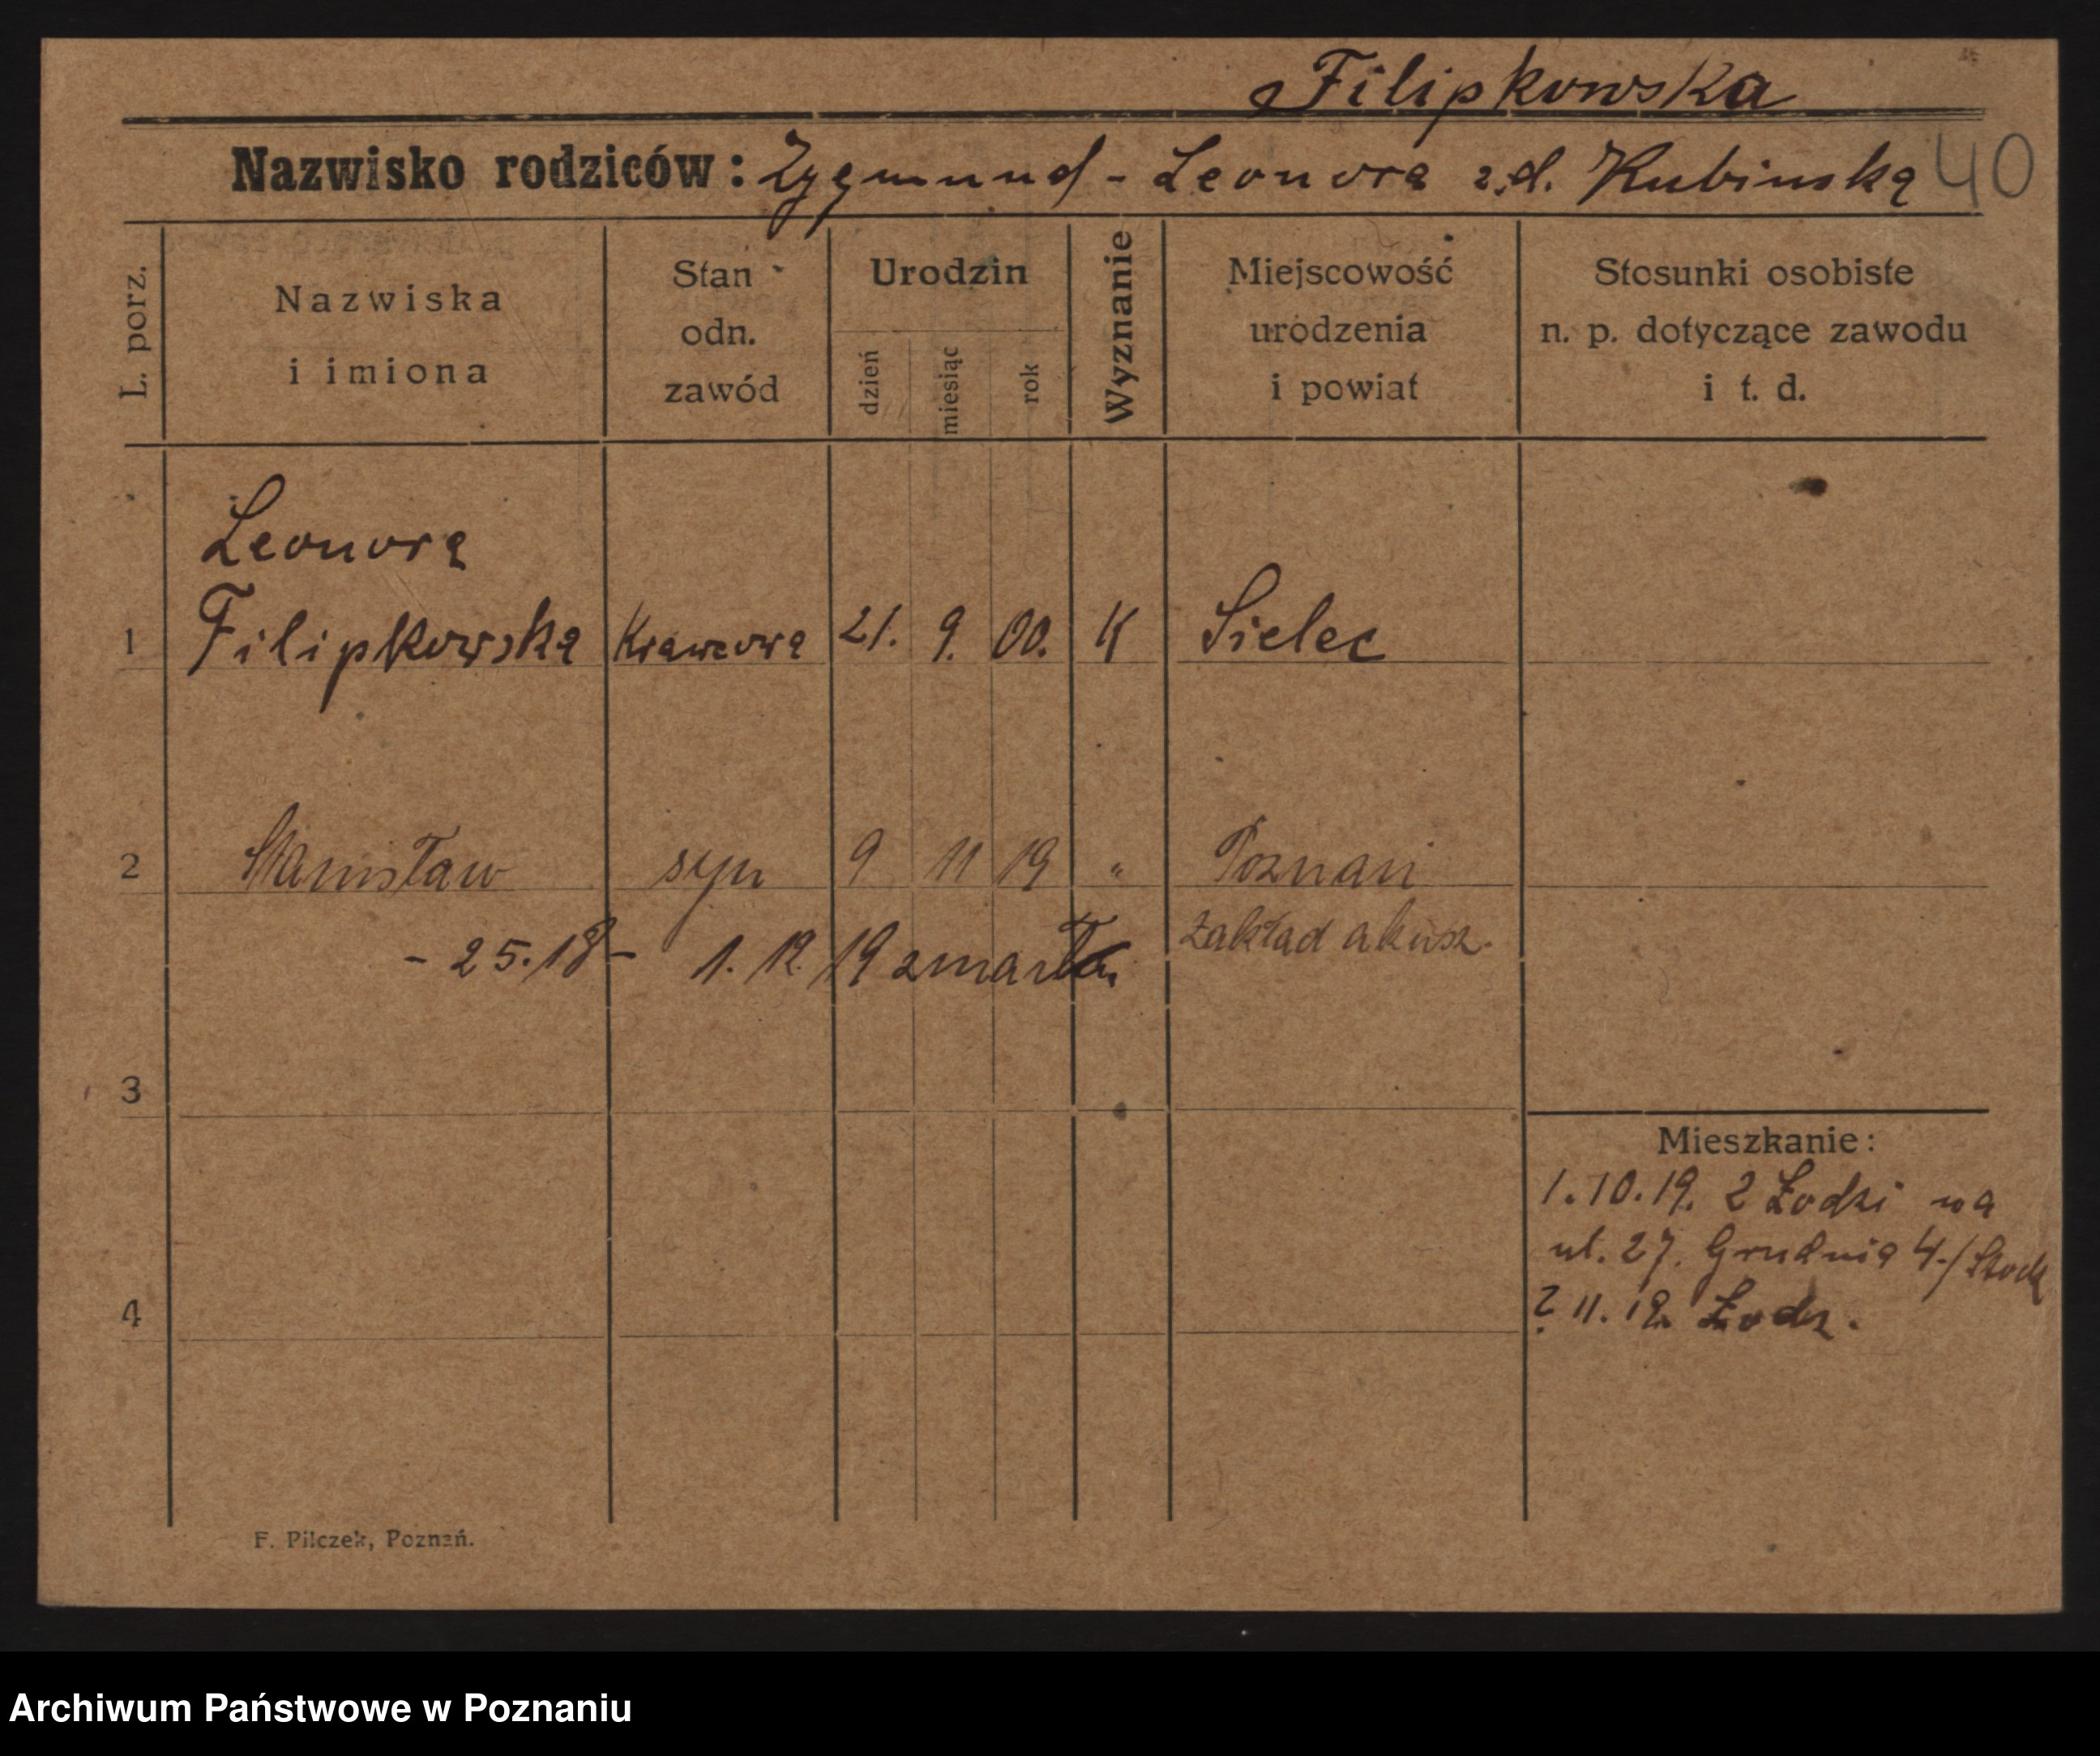 Filipkowska
Nazwisko rodziców: Zygmund - Leonora z.d. Kubinska 40
L. porz.
Nazwiska
i imiona
Stan
odn.
zawód
Urodzin
dzień
miesiąc
rok
Wyznanie
Miejscowość
urodzenia
i powiat
Stosunki osobiste
n. p. dotyczące zawodu
i t. d.
Leonora
1 Filipkowska Krawcowa 21. 9. 00. K Sielec
2 Stanisław syn 9 11 19 " Poznań
Zakład akusz.
- 25.18 - 1. 12. 19
3
Mieszkanie:
1.10.19. z Łodzi na
ul. 27. Grudnia 4./
4
11. 19. Łodz.
F. Pilczek, Poznań.
Archiwum Państwowe w Poznaniu